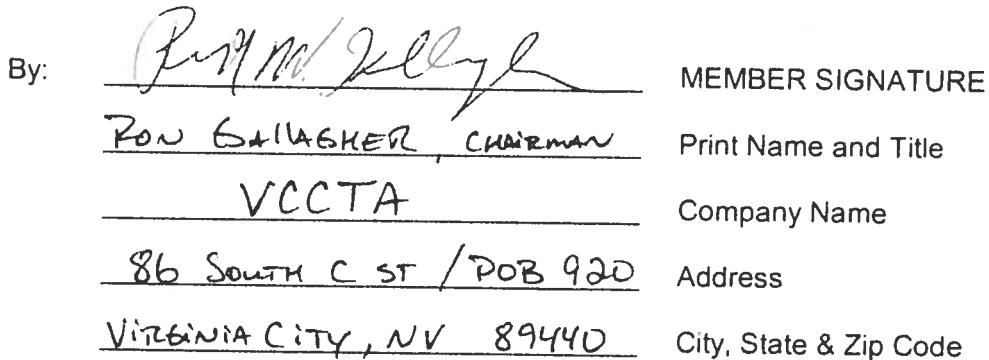 By: MEMBER SIGNATURE
RON GALLAGHER, CHAIRMAN Print Name and Title
VCCTA Company Name
86 SOUTH C ST / POB 920 Address
VIRGINIA CITY, NV 89440 City, State & Zip Code